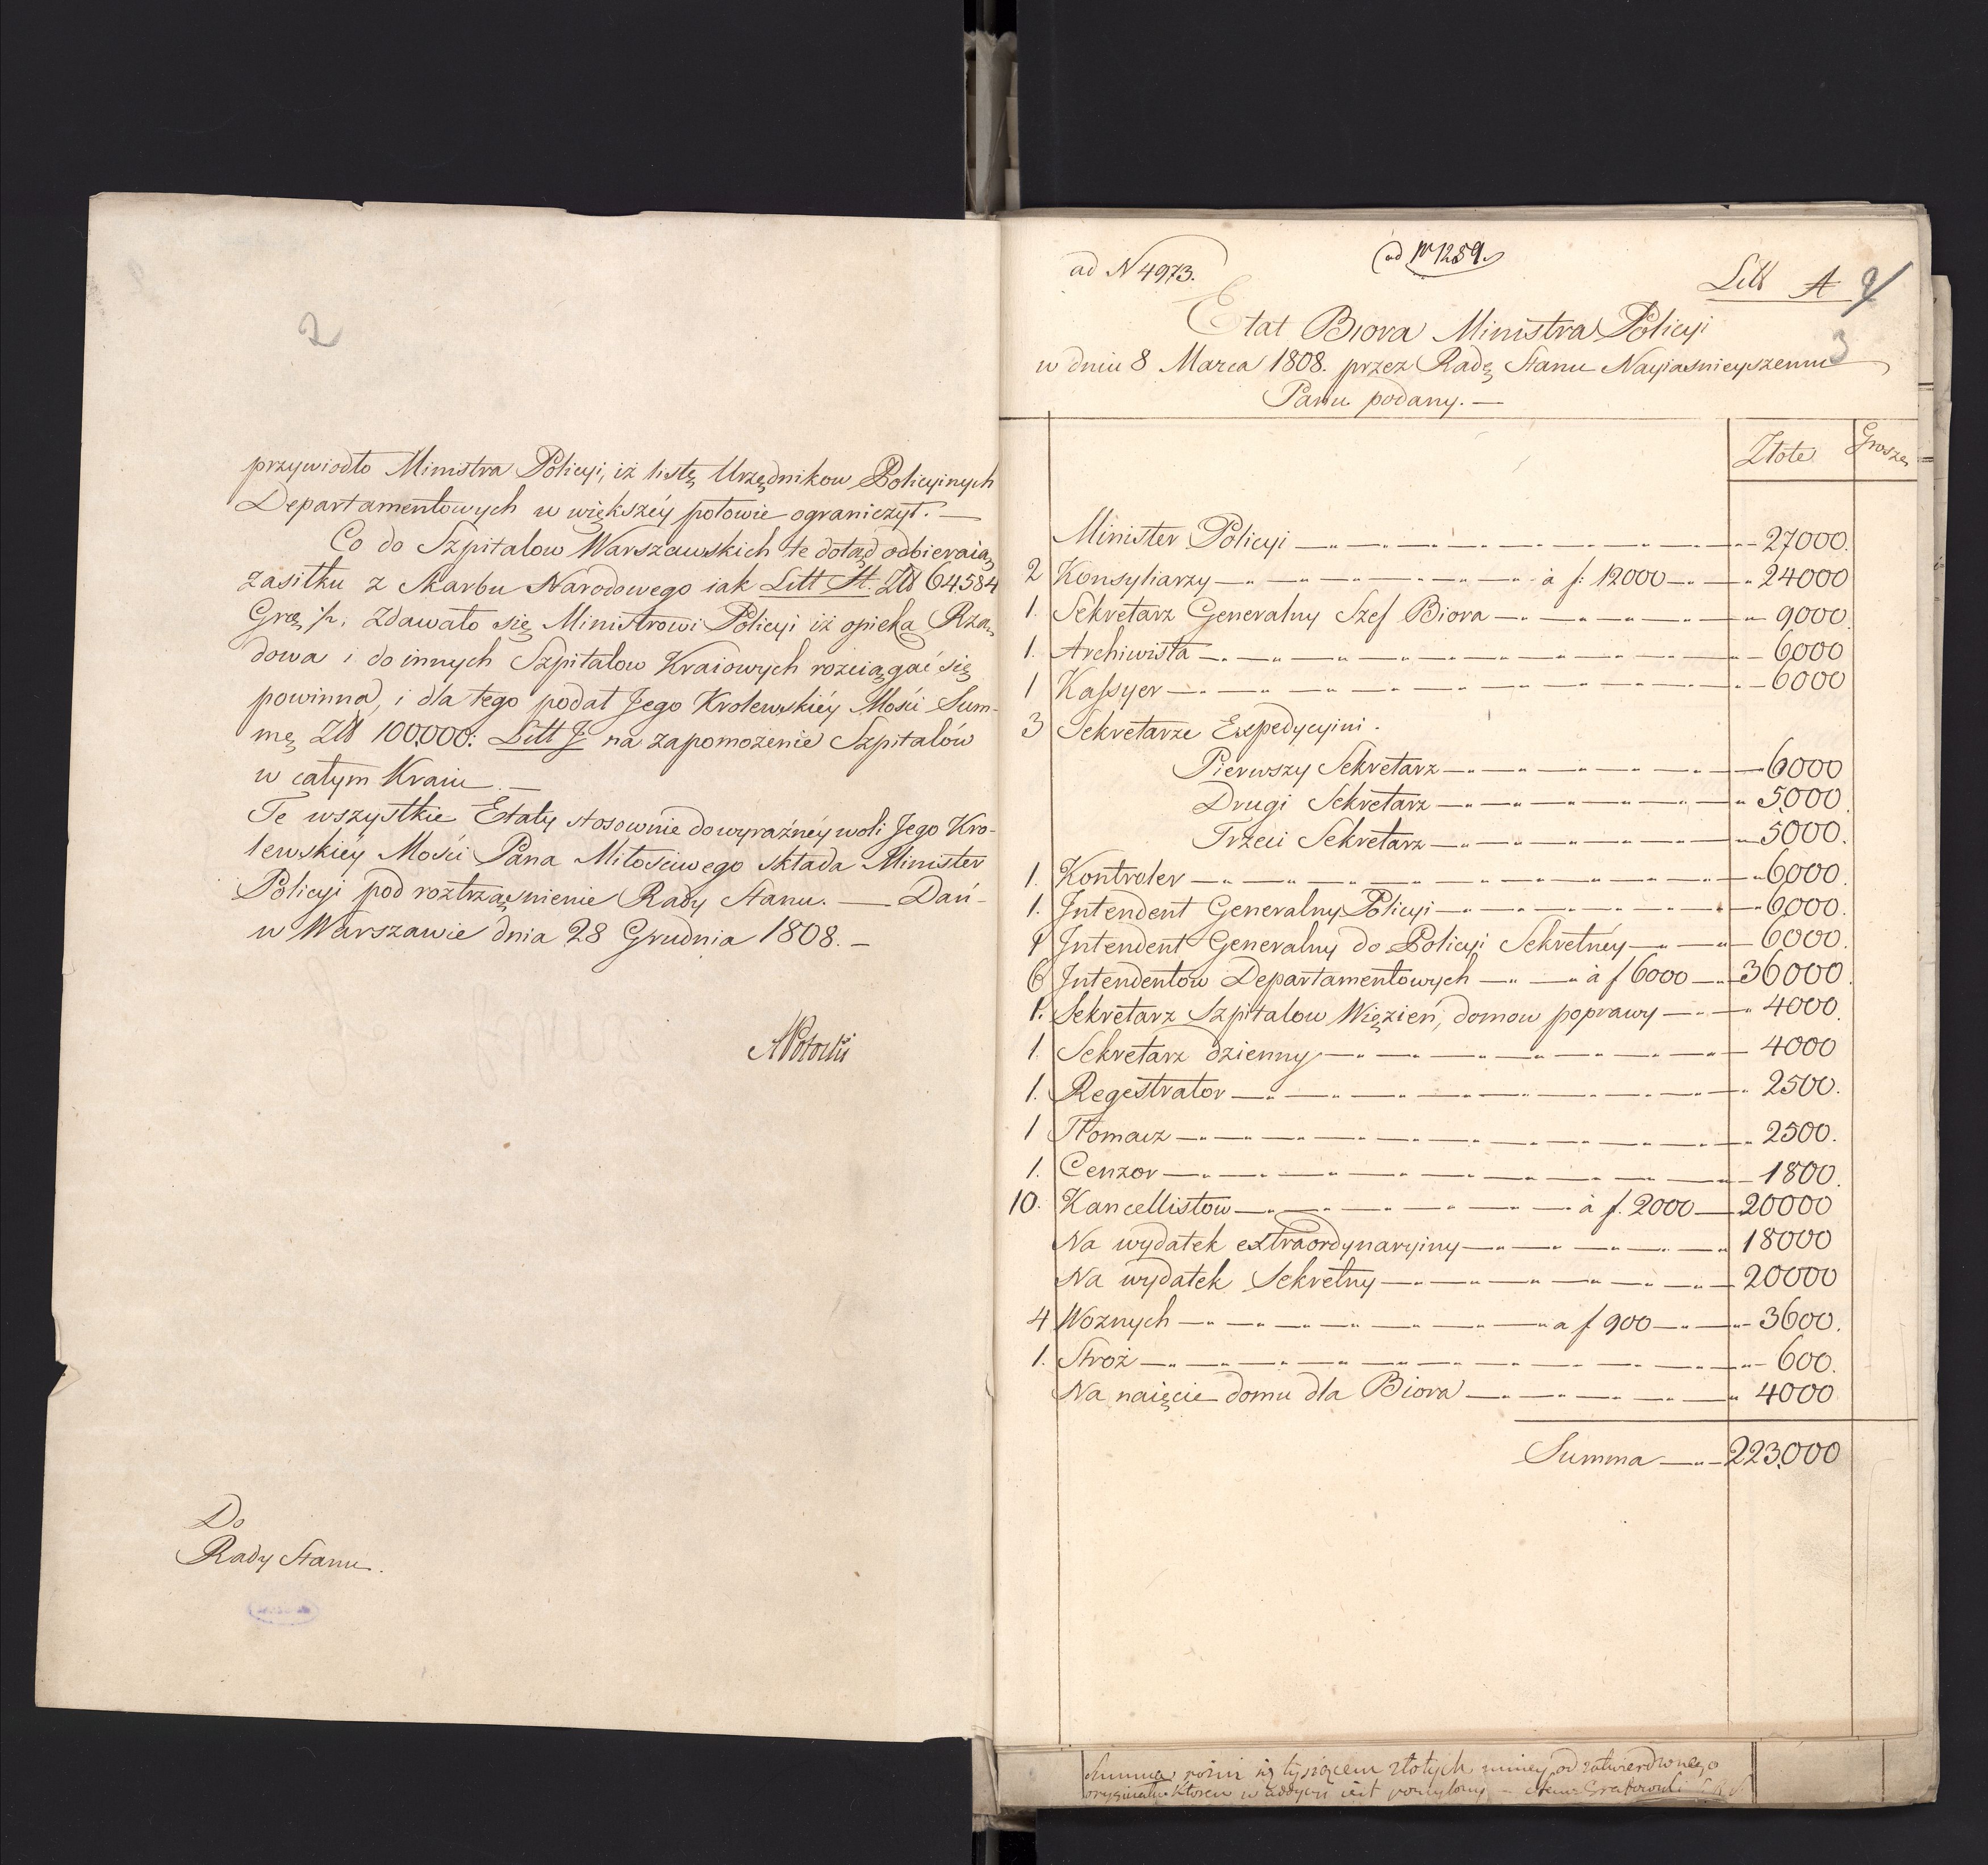 2
przywiodło Ministra Policyi, iż listę Urzędnikow Policyinych
Departamentowych w większéy połowie ograniczył. —
Co do Szpitalow Warszawskich te dotąd odbieraią
zasiłku z Skarbu Narodowego iak Litt H. Złł 64584
Gro ½. Zdawało się Ministrowi Policyi iż opieka Rzą-
dowa i do innych Szpitalow Kraiowych rozciągać się
powinna, i dla tego podał Jego Krolewskiéy Mości Sum-
mę Złł 100,000: Litt J na zapomożenie Szpitalów
w całym Kraiu. —
Te wszystkie Etaty stosownie do wyraźnéy woli Jego Kro-
lewskiéy Mości Pana Miłościwego składa Minister
Policyi pod roztrząśnienie Rady Stanu. — Dań-
w Warszawie dnia 28 Grudnia 1808. —
APotocki
Do
Rady Stanu.
ad N 4973.
ad N 1259.
Litt A
3
Etat Biora Ministra Policyi
w dniu 8 Marca 1808. przez Radę Stanu Nayiaśnieyszemu
Panu podany. —
Złote Grosze
Minister Policyi — 27000.
2 Konsyliarzy — à f: 12000 — 24000
1. Sekretarz Generalny Szef Biora — 9000.
1. Archiwista — 6000
1 Kassyer — 6000
3 Sekretarze Expedycyini.
Pierwszy Sekretarz — 6000
Drugi Sekretarz — 5000.
Trzeci Sekretarz — 5000.
1. Kontroler — 6000.
1. Intendent Generalny Policyi — 6000.
1 Intendent Generalny do Policyi Sekretnéy — 6000.
6 Intendentow Departamentowych — à f 6000 — 36000.
1. Sekretarz Szpitalow Więzień, domow poprawy — 4000.
1. Sekretarz dzienny — 4000
1. Regestrator — 2500.
1 Tłomacz — 2500.
1. Cenzor — 1800.
10. Kancellistow — à f. 2000 — 20000
Na wydatek extraordynaryiny — 18000
Na wydatek Sekretny — 20000
4 Woznych — a f. 900 — 3600.
1. Stroż — 600.
Na naięcie domu dla Biora — 4000
Summa — 223,000
Summa rożni się tysiącem złotych mniey od zatwierdzonego
oryginału ktoren w addycyi iest pomylony —